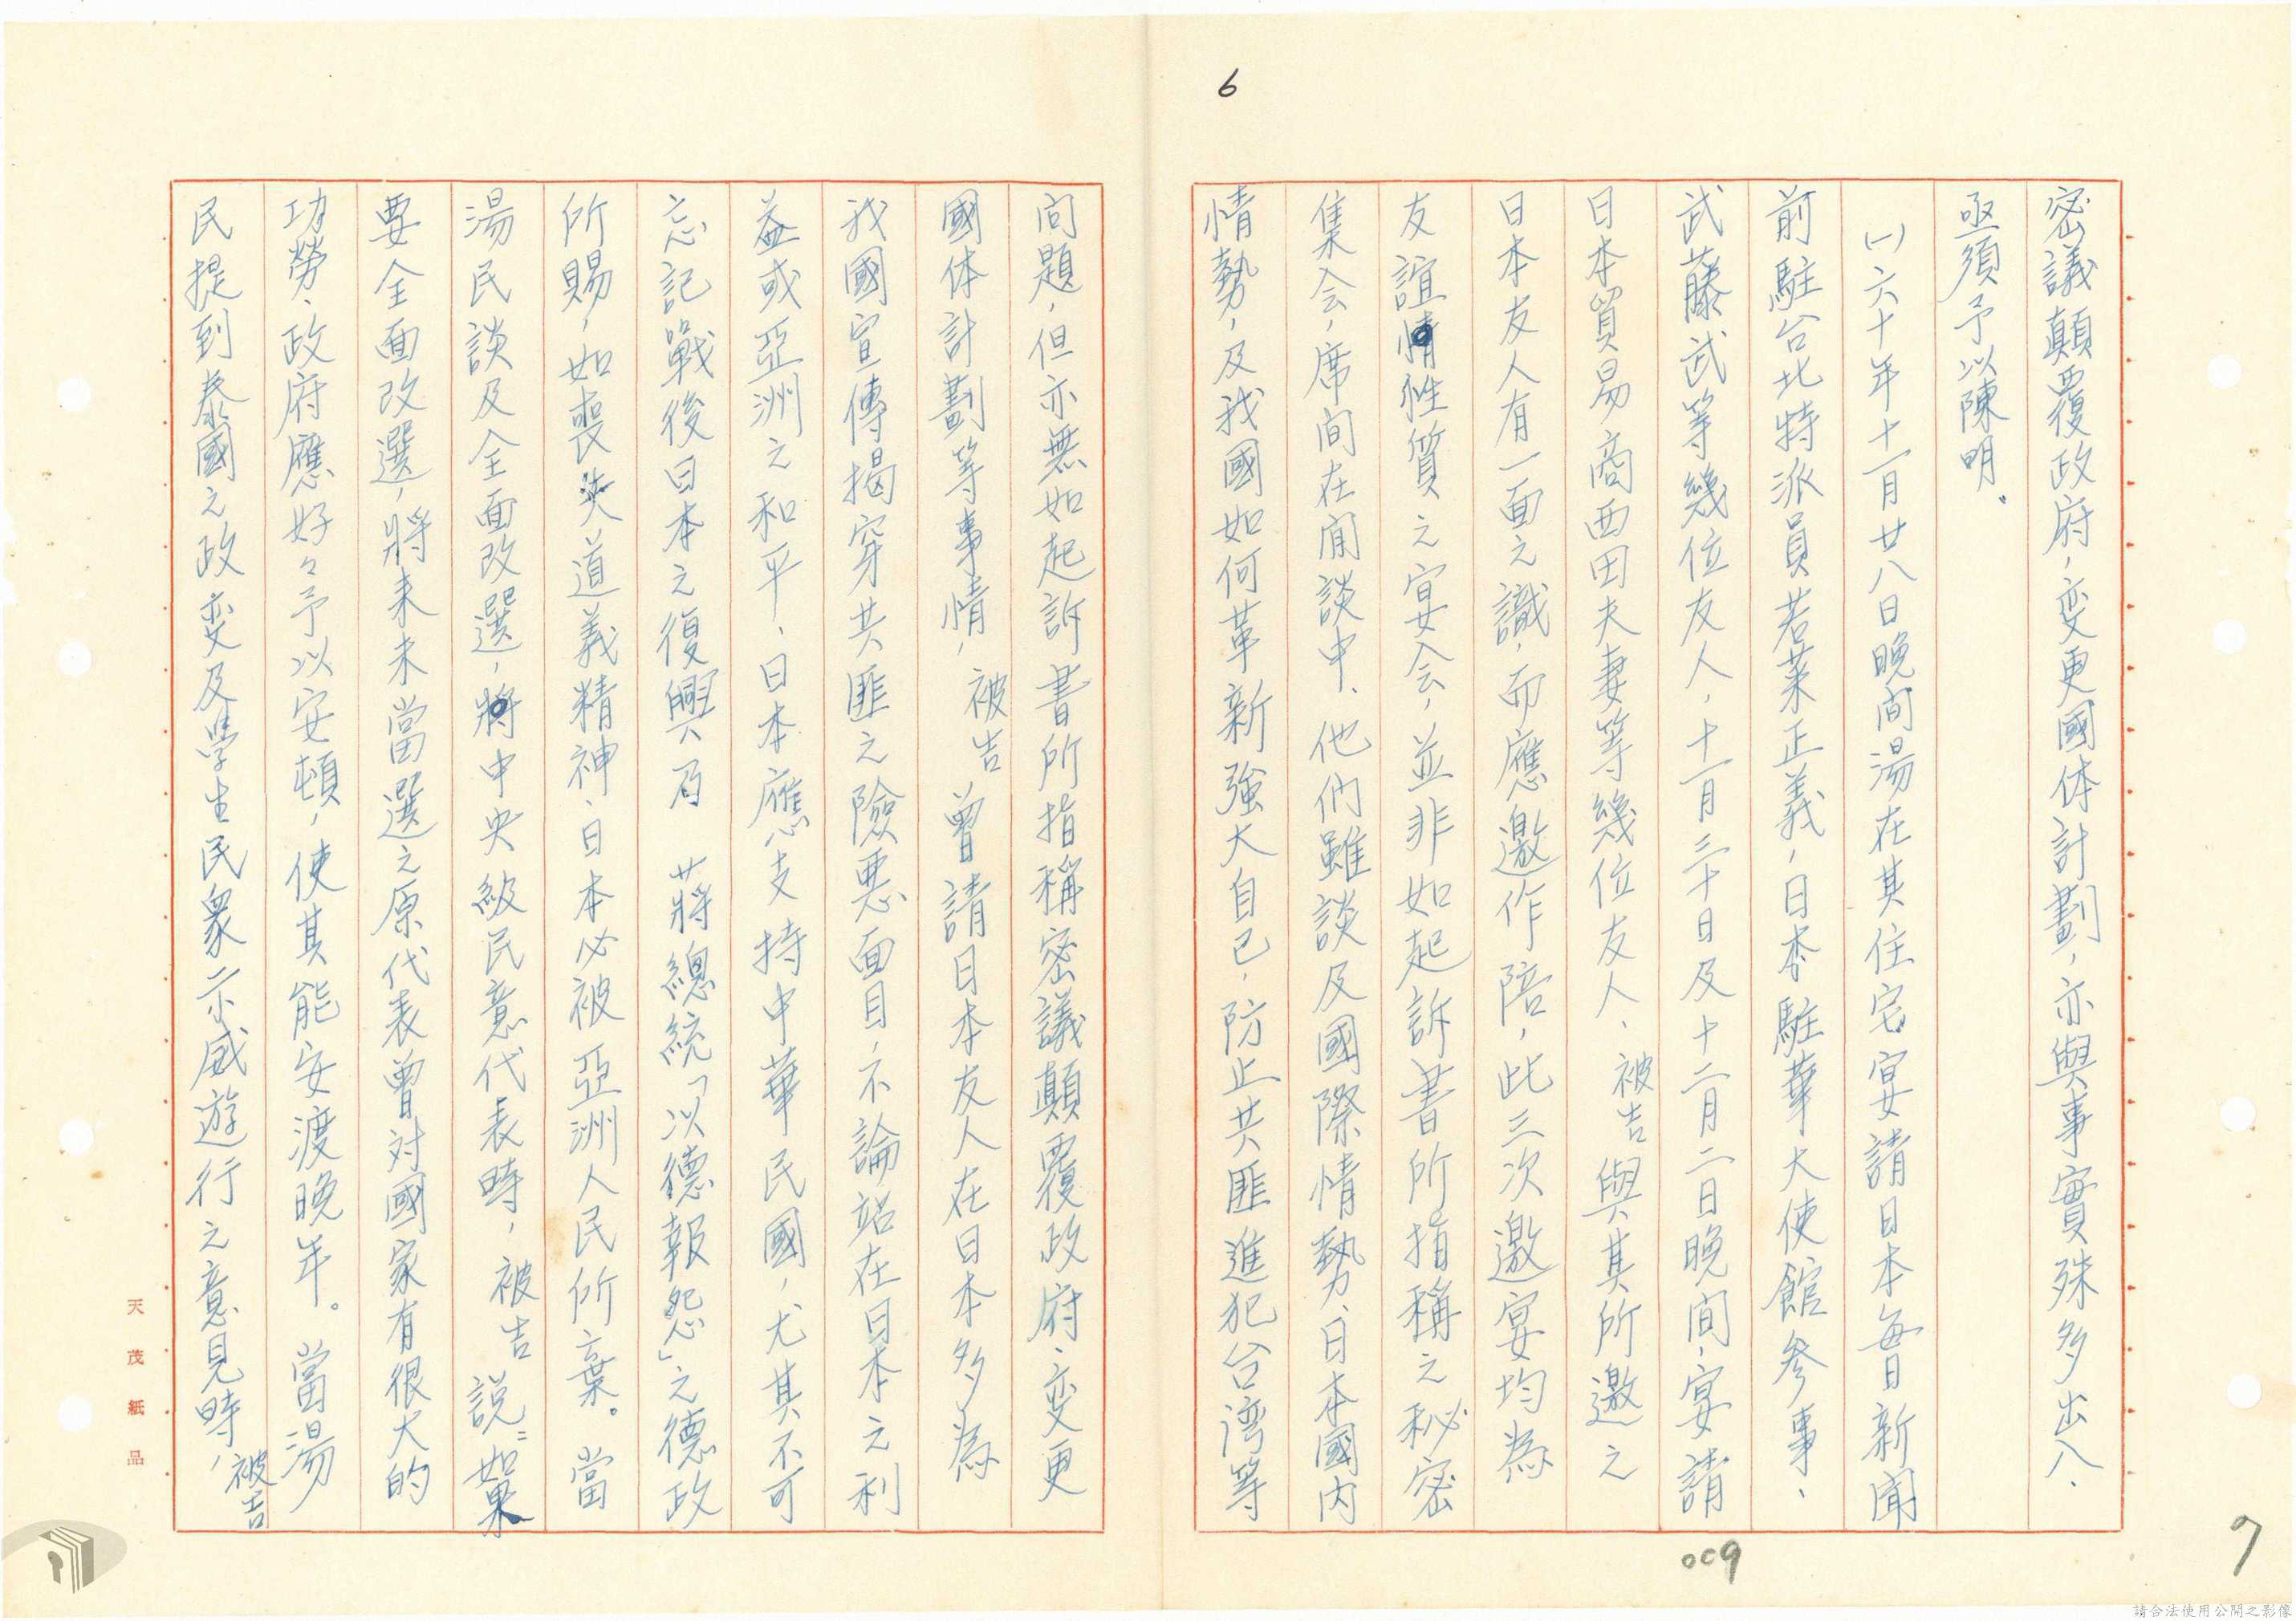 6
密議顛覆政府，变更國体計劃，亦與事實殊多出入、
亟須予以陳明。
㈠六十年十一月廿八日晚间湯在其住宅宴請日本每日新聞
前駐台北特派員若菜正義，日本駐華大使館参事、
武藤武等幾位友人，十一月三十日及十二月二日晚间，宴請
日本貿易商西田夫妻等幾位友人、被告與其所邀之
日本友人有一面之識，而應邀作陪，此三次邀宴均為
友誼性質之宴会，並非如起訴書所指稱之秘密
集会，席间在閒談中、他们雖談及國際情勢、日本國内
情勢，及我國如何革新強大自己，防止共匪進犯台湾等
问題，但亦無如起訴書所指稱密議顛覆政府、变更
國体計劃等事情，被告曾請日本友人在日本多為
我國宣傳揭穿共匪之險惡面目，不論站在日本之利
益或亞洲之和平、日本應支持中華民國，尤其不可
忘記戰後日本之復興爲 蔣總統「以德報怨」之德政
所賜，如喪失道義精神、日本必被亞洲人民所棄。當
湯民談及全面改選，將中央級民意代表時，被告說：如果
要全面改選，將来未當選之原代表曾对國家有很大的
功勞、政府應好々予以安頓，使其能安渡晚年。當湯
民提到泰國之政变及學生民衆示威遊行之意見時，被告
天茂紙品
009
7
請合法使用公開之影像